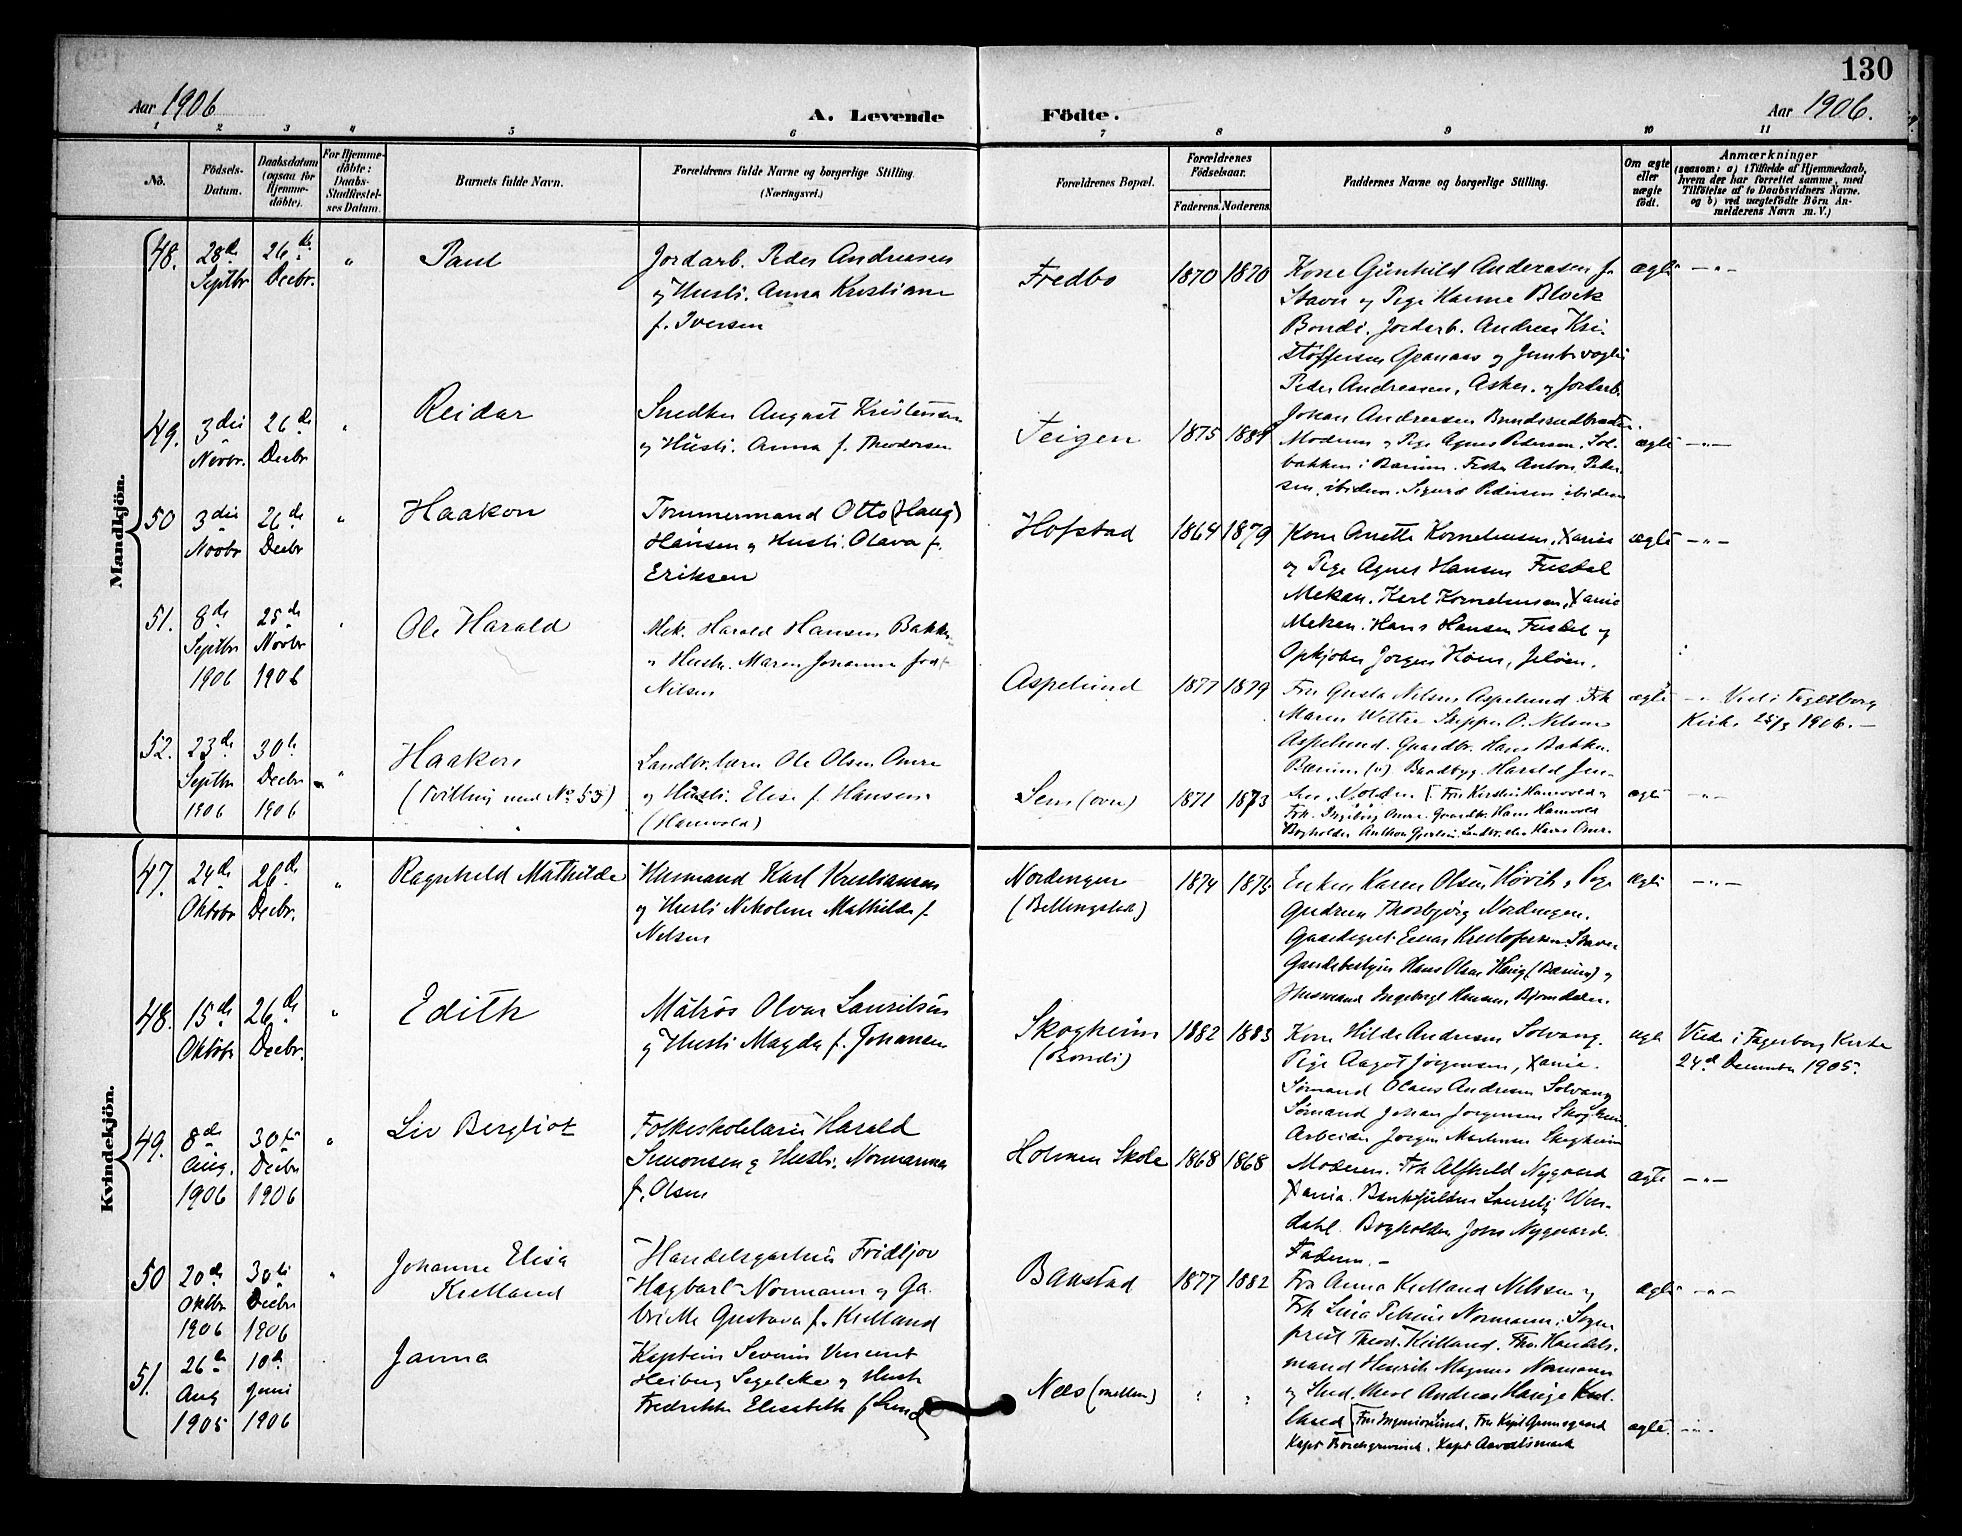 130
Aar 1906
A. Levende Födte.
Aar 1906.
1 2 3 4 5 6 7 8 9 10 11
No.
Födsels-Datum.
Daabsdatum (ogsaa for Hjemme-döbte).
For Hjemme-döbte: Daabs-Stadfæstel-ses Datum.
Barnets fulde Navn.
Forældrenes fulde Navne og borgerlige Stilling. (Næringsvei.)
Forældrenes Bopæl.
Forældrenes Födselsaar.
Faderens. Moderens.
Faddernes Navne og borgerlige Stilling.
Om ægte eller uægte födt.
Anmærkninger
(saasom: a) i Tilfælde af Hjemmedaab,
hvem der har forrettet samme, med
Tilföielse af to Daabsvidners Navne.
og b) ved uægtefödte Börn An-
melderens Navn m. V.)
Mandkjön.
48. 28de Septbr 26de Decbr. " Paul
Jordarb. Peder Andreasen
og Hustr. Anna Kristiane
f. Iversen
Fredbo 1870 1870
Kone Gunhild Andersen f.
Stavn og Pige Hanna Block
Bondi. Jordarb. Andreas Kri-
stoffersen Granaas og
Peder Andreasen, Asker. og Jordarb.
Johan Andreasen
ægte —"—
49. 3die Novbr. 26de Decbr " Reidar
Snedker August Kristensen
og Hustr. Anna f. Theodorsen
Teigen 1875 1884
Modum og Pige Agnes Pedersen, Sol-
bakken i Bærum. Anton Peder-
sen, ibidem. Sigurd Pedersen ibidem
ægte —"—
50 3die Novbr 26de Decbr " Haakon
Tømmermand Otto (Haug)
Hansen og Hustr. Olava f.
Eriksen
Hofstad 1864 1879
Kone Anette Kornelsen, Xania
og Pige Agnes Hansen
Mekan. Karl Kornelsen, Xania
Meken. Hans Hansen og
Jørgen Holm, Jeløen.
ægte —"—
51. 8de Septbr 1906 25de Novbr 1906 " Ole Harald
Mek. Harald Hansen Bakke
og Hustr. Maren Johanne
Nilsen
Aspelund 1877 1879
Fru Gusta Nilsen Aspelund Frk
Maren Wettre Skipper O. Nilsen
Aspelund. Gaardbr. Hans Bakke.
Bærum (v) Baadbyg. Harald Jen-
sen, Volden
ægte —"— Viet i Fagerborg
Kirke 25/3 1906.—
52. 23de Septbr 1906 30te Decbr 1906 " Haakon
(Tvilling med No 53)
Ole Olsen Omre
og Hustr. Elise f. Hansen
(Hamvold)
Sem (øvre) 1871 1873
Fru Kirstin Hamvold og
Frk. Ingeborg Omre. Gaardbr. Hans Hamvold
Bogholder Anthon
ægte —"—
Kvindekjön.
47. 24de Oktobr 26de Decbr. " Ragnhild Mathilde
Husmand Karl Kristiansen
og Hustr. Nikoline Mathilde f.
Nilsen
Nordengen
(Billingstad)
1874 1875
Enken Karen Olsen Høvik, Pige
Gudrun Thorbjørg Nordengen.
Einar Kristofersen. Staver
Gaardsbestyrer Hans Olsen Haug (Bærum) og
Husmand Ingebregt Hansen Bjorndalen.
ægte —"—
48. 15de Oktobr 26de Decbr. " Edith
Matros Olvar Lauritsen
og Hustr. Magda f. Johansen
Skogheim
(Bondi)
1882 1883
Kone Hilde Andersen Solvang.
Pige Aagot Jørgensen, Xania.
Sømand Olaus Andersen Solvang
Sømand Johan Jørgensen Skogheim
Arbeider Jørgen Martinsen Skogheim
ægte Viet i Fagerborg Kirke
24de December 1905.
49. 8de Aug. 1906 30te Decbr 1906 " Liv Bergliot
Folkeskolelærer Harald
Simonsen og Hustr. Normanna
f. Olsen
Holmen Skole 1868 1868
Moderen. Frk Alfhild Nygaard
Xania. Laurits Wen-
dahl. Bogholder John Nygaard.
Faderen.—
ægte —"—
50 20de Oktbr 1906 30te Decbr 1906 " Johanne Elisa
Kielland
Handelsgartner Fridtjov
Hagbart Normann og Ga-
brielle Gustava f. Kielland
Baustad 1877 1882
Fru Anna Kielland Nilsen og
Frk Lina Petrine Normann. Sogne-
prest Theod. Kielland. Handels-
mand Henrik Magnus Normann
og Stud. Andreas Hauge Kiel-
land
ægte —"—
51. 26de Aug 1905 10de Juni 1906 Janna
Kaptein Severin Vincent
Heiberg Segelcke og Hustr
Fredrikke Elisabeth f. Lund
Næs (mellem) " "
Fru Ingeniør Lund. Fru Kapt
Kapt Borchgrevink. Kapt
ægte. —"—